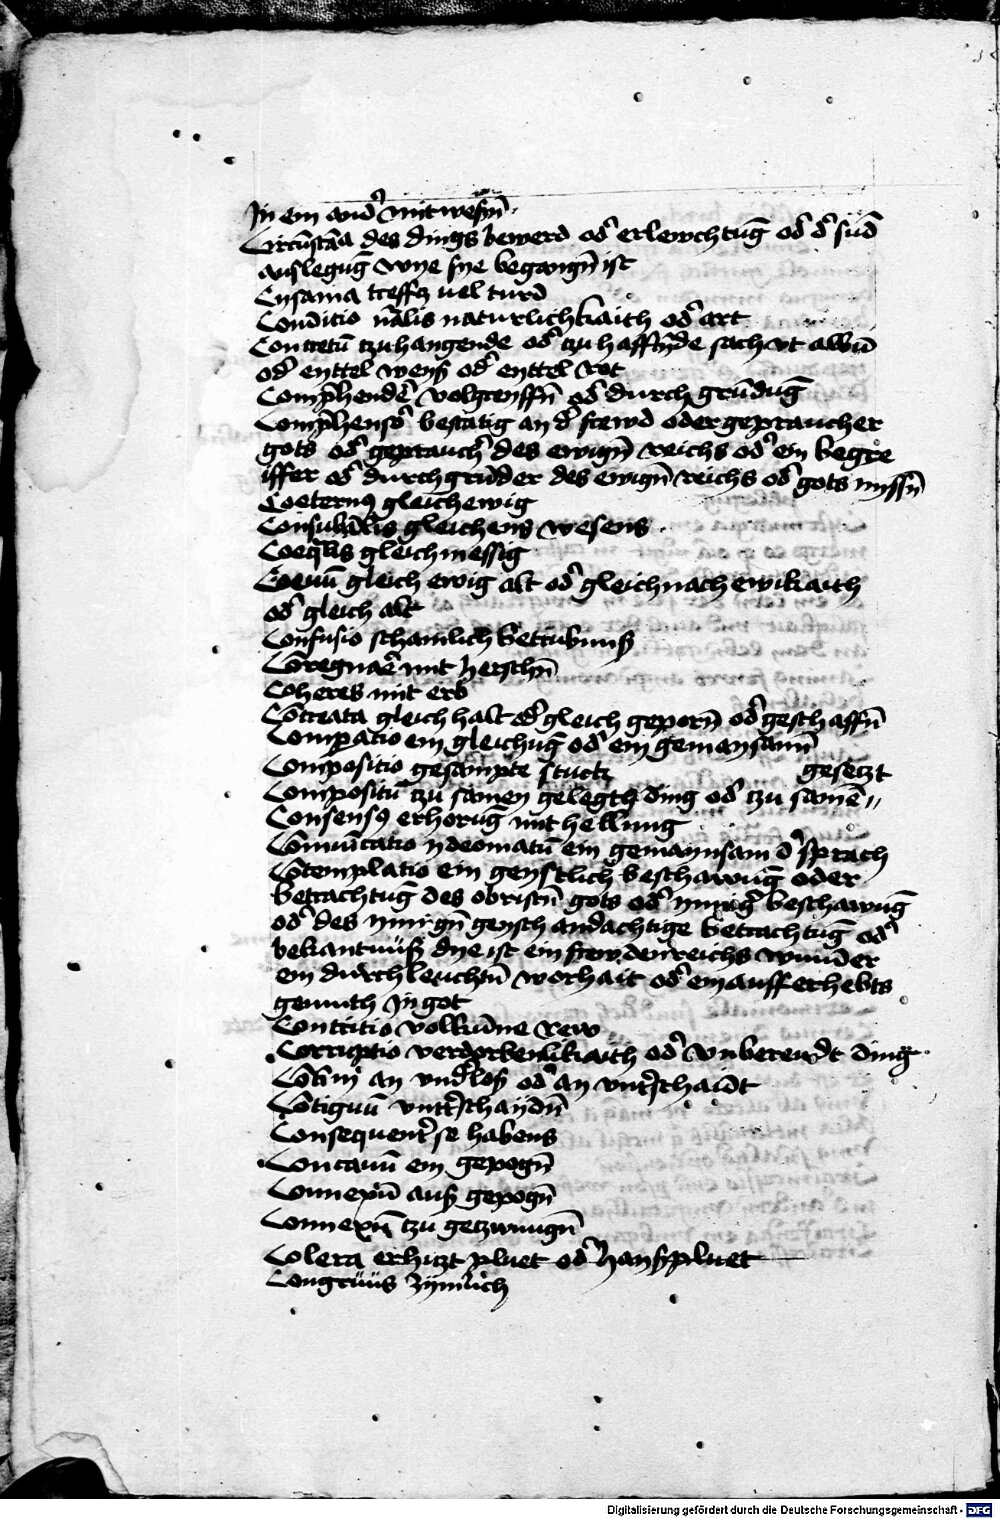 In ein and' mitwesn̄
Circūstācia des dings bewerd od' erlewchtūg od' d' sūd
auslegūg wye sye begangn̄ ist
Cusama treffz uel turd
Conditio nālis naturlichkaith od' art
Concretū tzuhangende od' tzuhafftn̄de sach vt albū
od' enttel weyß od' enttel rot
Comp̄hender̄ volgreyffn̄ od' durchgrūdūg
Comp̄hensor̄ bestatig an d' frewd oder gepraucher
gots od' geprauch' des ewign̄ reichs od' ein begre
iffer od' durchgrūder des ewign̄ reichs od' gots nyssn̄
Coeternꝰ gleich ewig
Consubālis gleichens wesens
Coeq̄lis gleichmessig
Coeuū gleich ewig alt od' gleich nach ewikaith
od' gleich alt
Confusio schamlich betrubnuß
Cōregnar̄ mit herschn̄
Coheres mit erb
Cōcreata gleich halt od' gleich geporn̄ od' geschaffn̄
Comparatio ein gleichūg od' ein gemaynsam̄
Compositio gesampte stuck
gesetzt
Compositū tzu samen gelegth ding od' tzu samē //
Consensꝰ erhorūg mit hellung
Cōmūicatio ydeomatū ein gemaynsam d' sprach
Cōtemplatio ein geystlich beschawūg oder
betrachtūg des obristn̄ gots od' ynnig' beschawūg
od' des ynnign̄ gensch andachtige betrachtūg od'
bekantnuß dye ist ein frewdenreichs wunder
ein durchleuchtn̄ worhait od' ein aufferhebts
gemuth In got
Contritio volkūne rew
Corruptio verdorbenlikaith od' vnberendt ding
an vnd'loß od' an vnt'schaidt
Cōtiguū vnt'schaydn̄
Consequent' se habens
Concauū ein gepogn̄
Connexū auß gepogn̄
Connexū tzu getzwungn̄
Colera erhitzt pluet od' hayßpluet
Congruus zymlich
Digitalisierung gefördert durch die Deutsche Forschungsgemeinschaft - DFG